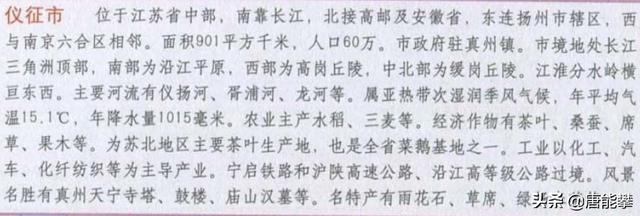 仪征市 位于江苏省中部，南靠长江，北接高邮及安徽省，东连扬州市辖区，西
与南京六合区相邻。面积901平方千米，人口60万。市政府驻真州镇。市境地处长江
三角洲顶部，南部为沿江平原，西部为高岗丘陵，中北部为缓岗丘陵。江淮分水岭横
亘东西。主要河流有仪扬河、胥浦河、龙河等。属亚热带次湿润季风气候，年平均气
温15.1℃，年降水量1015毫米。农业主产水稻、三麦等。经济作物有茶叶、桑蚕、席
草、果木等。为苏北地区主要茶叶生产地，也是全省菜鹅基地之一。工业以化工、汽
车、化纤纺织等为主导产业。宁启铁路和沪陕高速公路、沿江高等级公路过境。风景
名胜有真州天宁寺塔、鼓楼、庙山汉墓等。名特产有雨花石、草席、绿
头条@唐能攀